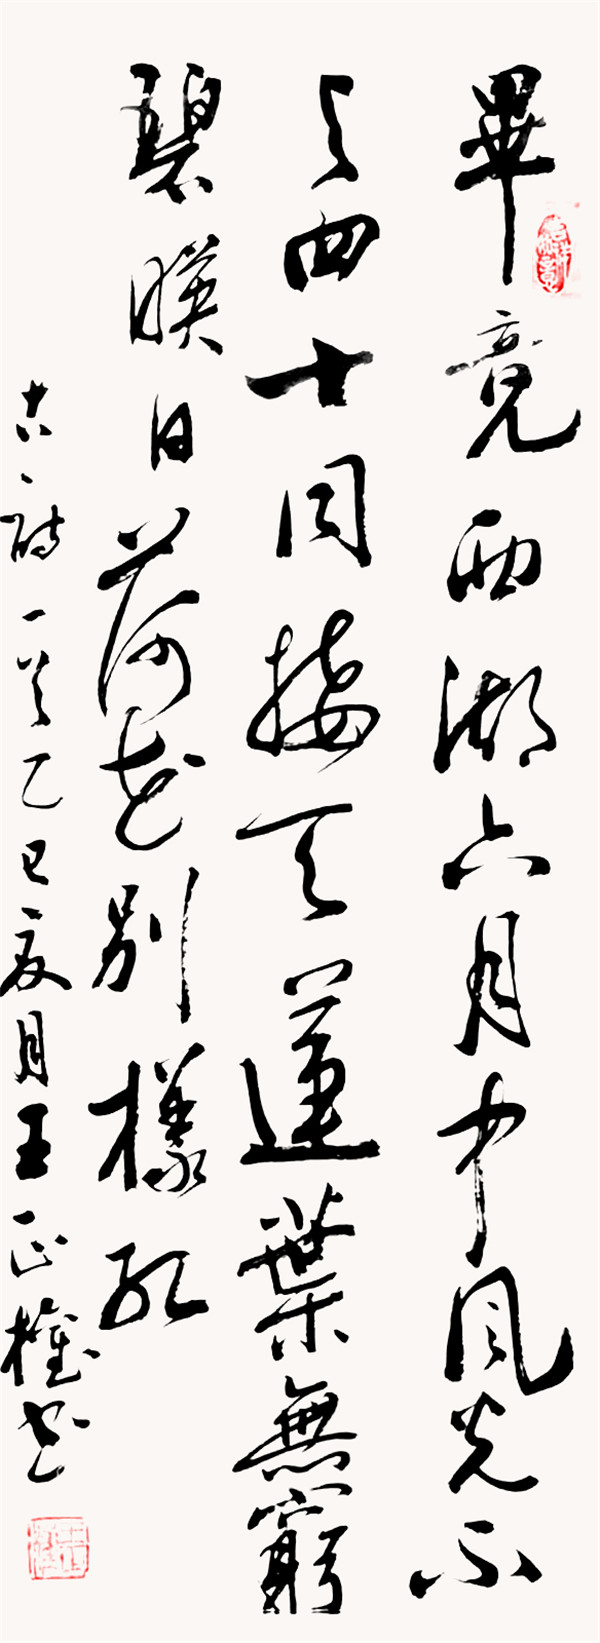 畢竟西湖六月中風光不
与四十同接天蓮葉無窮
碧暎日荷花別樣紅
古詩一首乙巳夏月王正權書